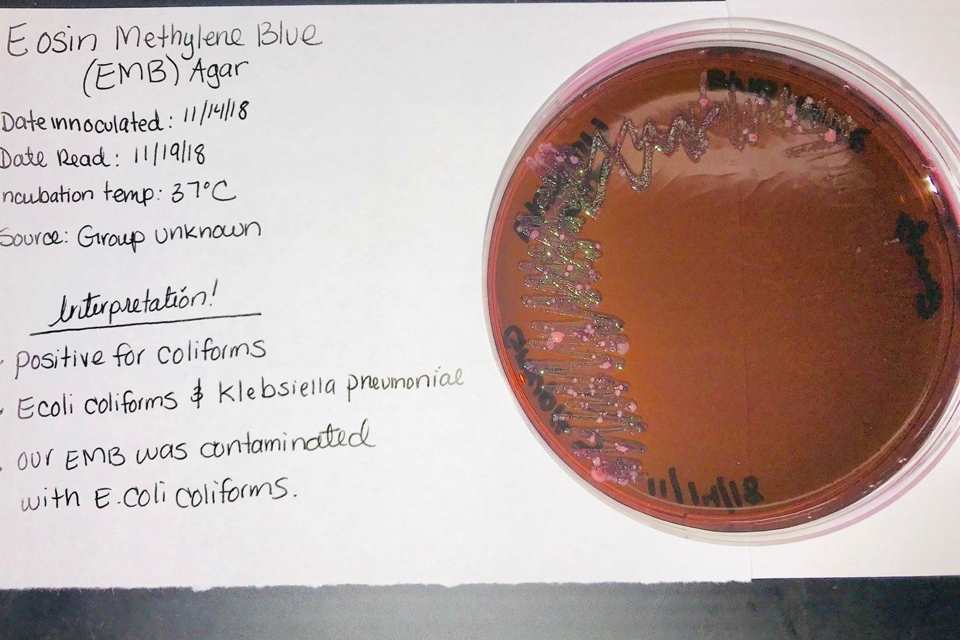 Eosin Methylene Blue
(EMB) Agar
Date innoculated: 11/14/18
Date Read: 11/19/18
ncubation temp: 37°C
Source: Group unknown
Interpretation!
positive for coliforms
Ecoli coliforms & Klebsiella pneumoniae
our EMB was contaminated
with E.coli coliforms.
11/14/18